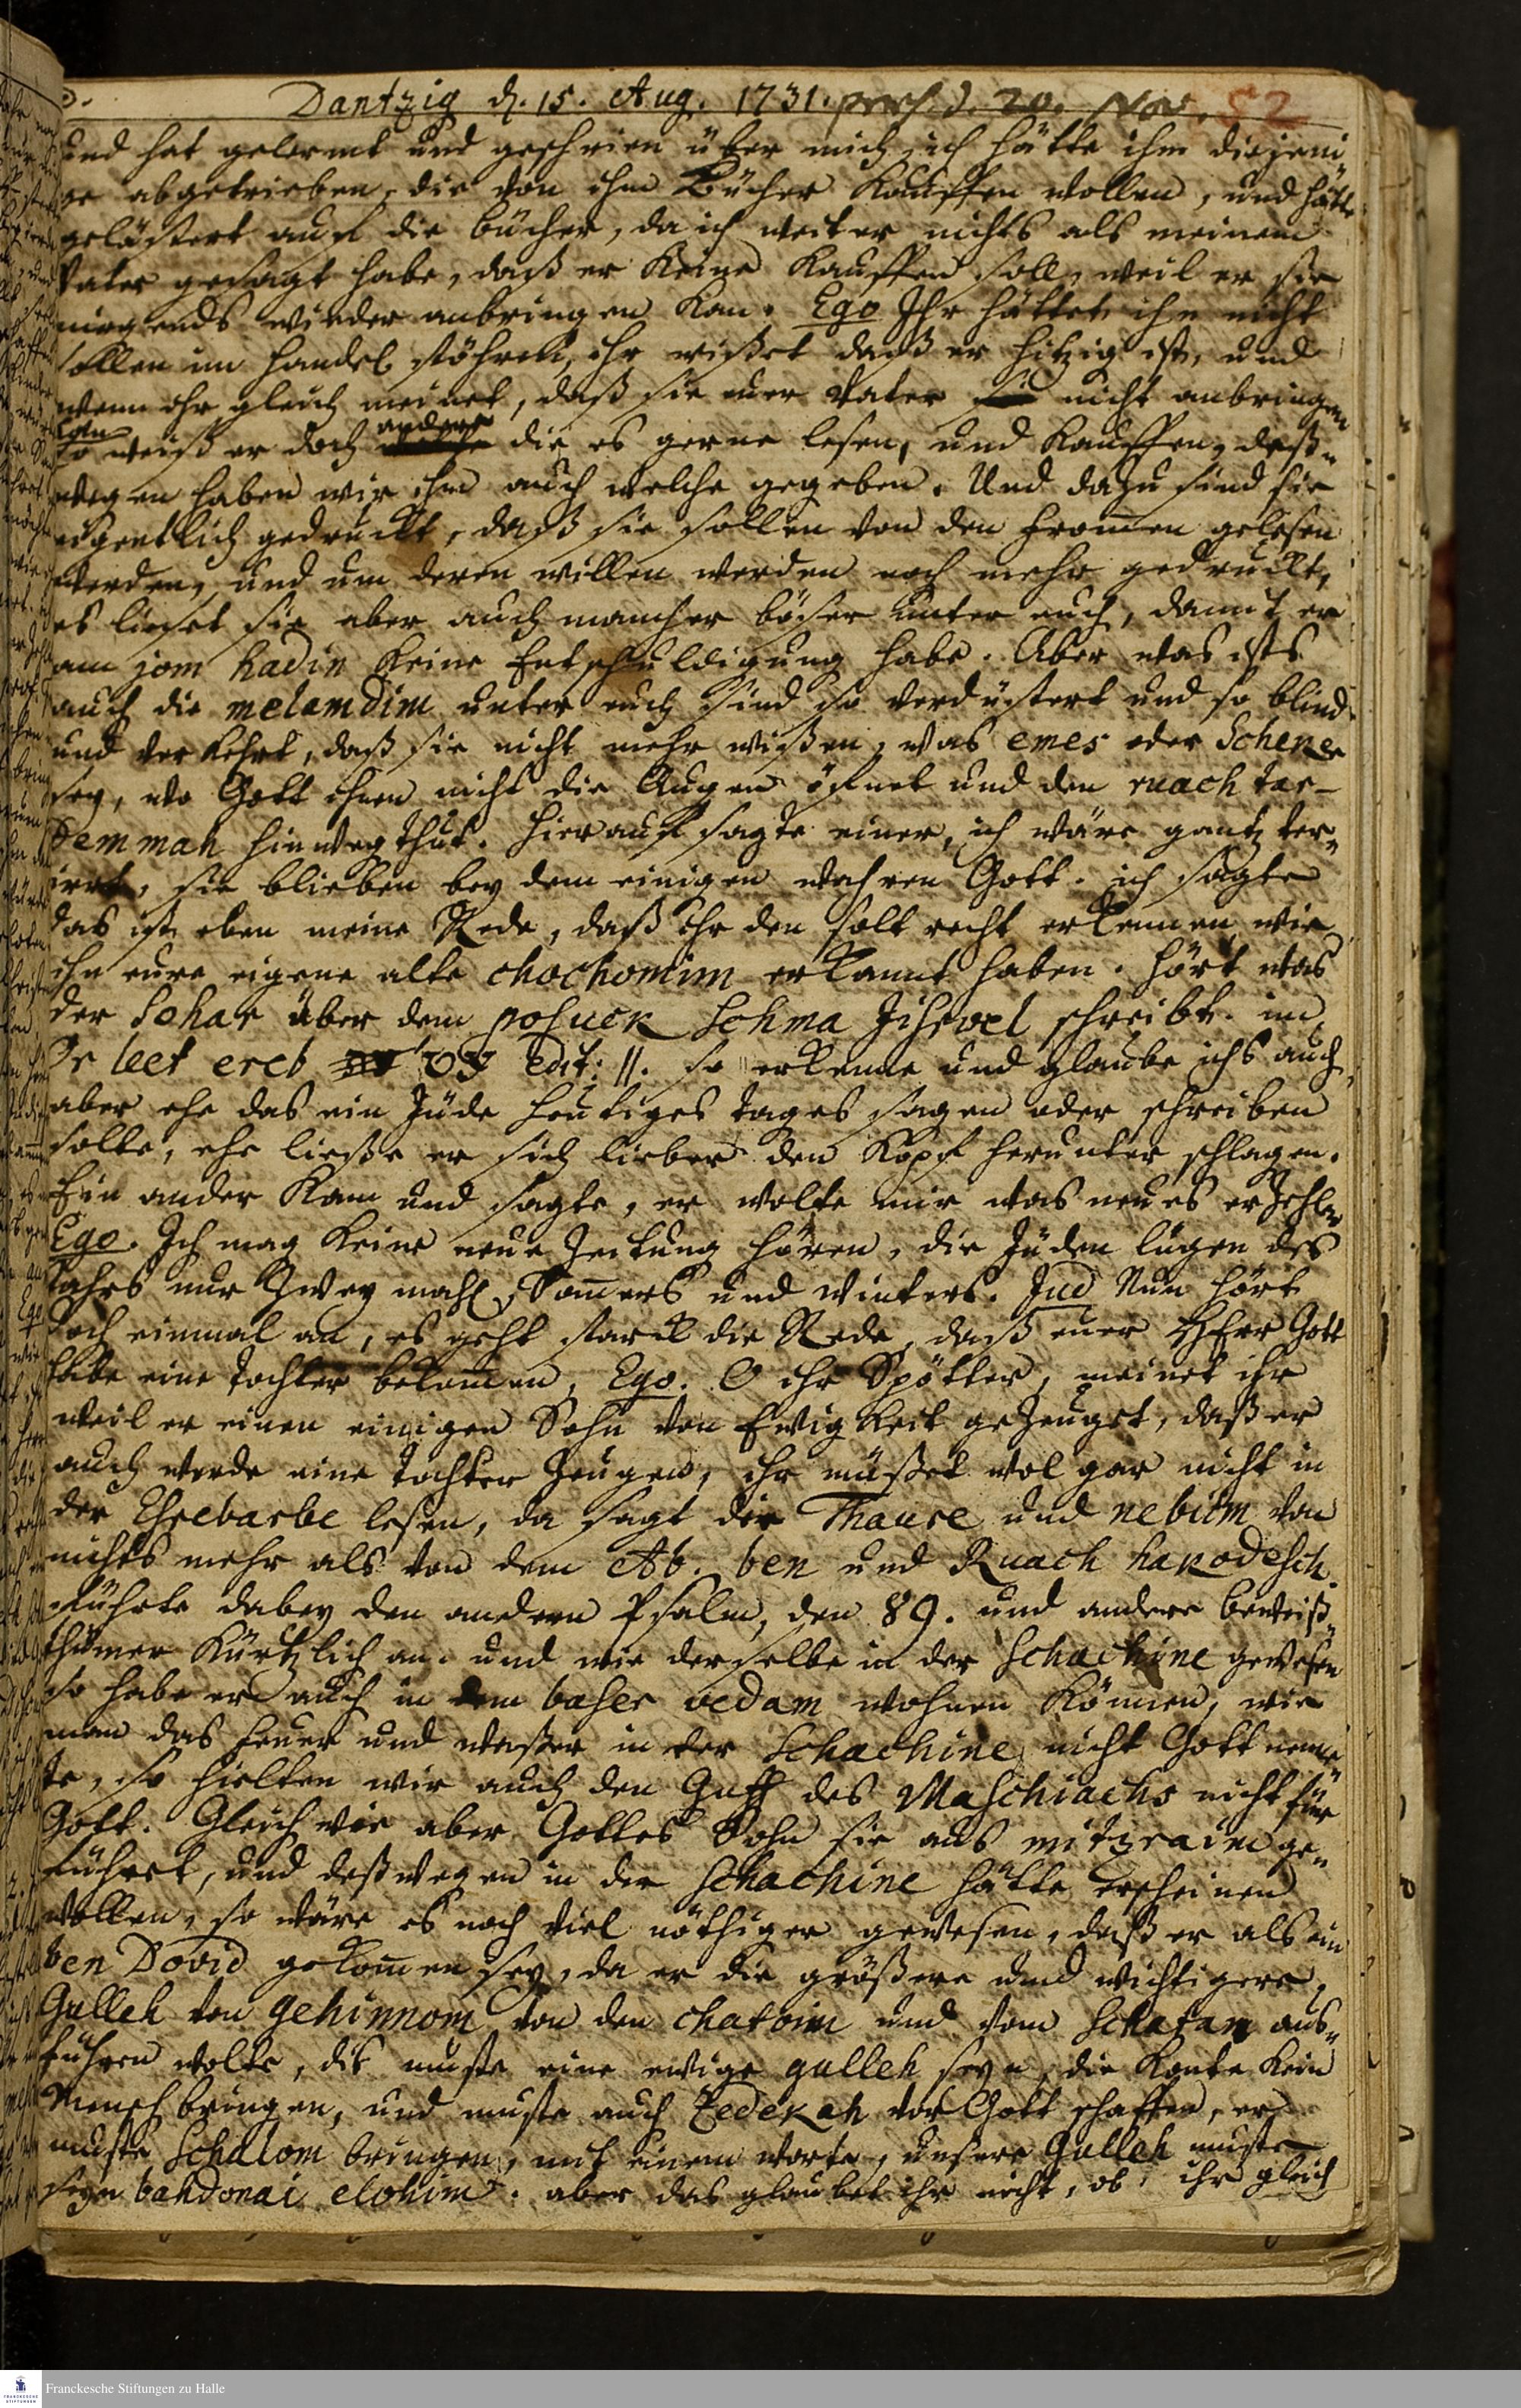 Dantzig d. 15. Aug. 1731. præs. d. 20. Nov. 52
und hat gelermt und geschrien über mich, ich hätte ihm diejeni-
ge abgetrieben, die von ihm Bücher Kauffen wollen, und hätte
gelästert auf die bücher, da ich weiter nichts als meinem
Vater gesagt habe, daß er Keine Kauffen soll, weil er sie
nirgends wieder anbringen Kan. Ego Ihr hättet ihn nicht
sollen im Handel stöhren, ihr wißet daß er hitzig ist, und
wenn ihr gleich meinet, daß sie euer Vater nicht anbringen
kan
so weiß er doch andere die es gerne lesen, und Kauffen, deß-
wegen haben wir ihm auch welche gegeben. Und dazu sind sie
eigentlich gedruckt, daß sie sollen von den frommen gelesen
werden, und um deren willen werden noch mehr gedruckt,
es lieset sie aber auch mancher böser unter euch, damit er
am jom hadin Keine Entschuldigung habe. Aber was ists
auch die melamdim unter euch sind so verdüstert und so blind
und verkehrt, daß sie nicht mehr wißen, was emes oder Scheker
sey, wo Gott ihnen nicht die Augen öfnet und den ruach tar-
demmah hinwegthut. Hierauf sagte einer, ich wäre gantz ver-
irrt, sie blieben bey dem einigen wahren Gott. ich sagte
das ist eben meine Rede, daß ihr den solt recht erkennen, wie
ihn eure eigene alte chochomim erkannt haben. Hört was
der Sohar über dem posuck Schma Jisroel schreibt. im
Or leet ereb edit: 11. so erkenne und glaube ichs auch,
aber ehe das ein Jüde heutiges tages sagen oder schreiben
solte, ehe ließe er sich lieber den Kopf herunter schlagen.
Ein ander Kam und sagte, er wolte mir was neues erzehlen
Ego. Ich mag Keine neue Zeitung hören, die Jüden lügen des
Jahrs nur Zwey mahl, Sommers und winters. Jud Nun hört
doch einmal an, es geht starck die Rede, daß euer HErr Gott
habe eine Tochter bekommen, Ego. O ihr Spötter, meinet ihr
weil er einen einigen Sohn von Ewigkeit gezeuget, daß er
auch werde eine Tochter zeugen, ihr müßet wol gar nicht in
der Esrebarbe lesen, da sagt die Thaure und nebiim von
nichts mehr als von dem Ab. ben und Ruach hakodesch.
führte dabey den andern Psalm, den 89. und andere beweiß-
thümer Kürtzlich an. und wie derselbe in der Schachine gewesen
so habe er auch in dem baser vedam wohnen Können, wie
man das feuer und waßer in der Schachine nicht Gott nenne-
te, so hielten wir auch den Guff des Maschiachs nicht für
Gott. Gleichwie aber Gottes Sohn sie aus mitzraim ge-
führet, und deßwegen in der Schachine hätte erscheinen
wollen, so wäre es noch viel nöthiger gewesen, daß er als ein
ben Dovid gekommen sey, da er die größere und wichtigere
Gulleh von gehinnom von den chatoim und vom Schatan aus-
führen wolte, dis muste eine ewige gulleh seyn, die Konte Kein
Mensch bringen, und muste auch Zedekah vor Gott schaffen, er
muste Schalom bringen, mit einem worte, unsere Gulleh muste
seyn bahdonai elohim. aber das glaubet ihr nicht, ob ihr gleich
Franckesche Stiftungen zu Halle